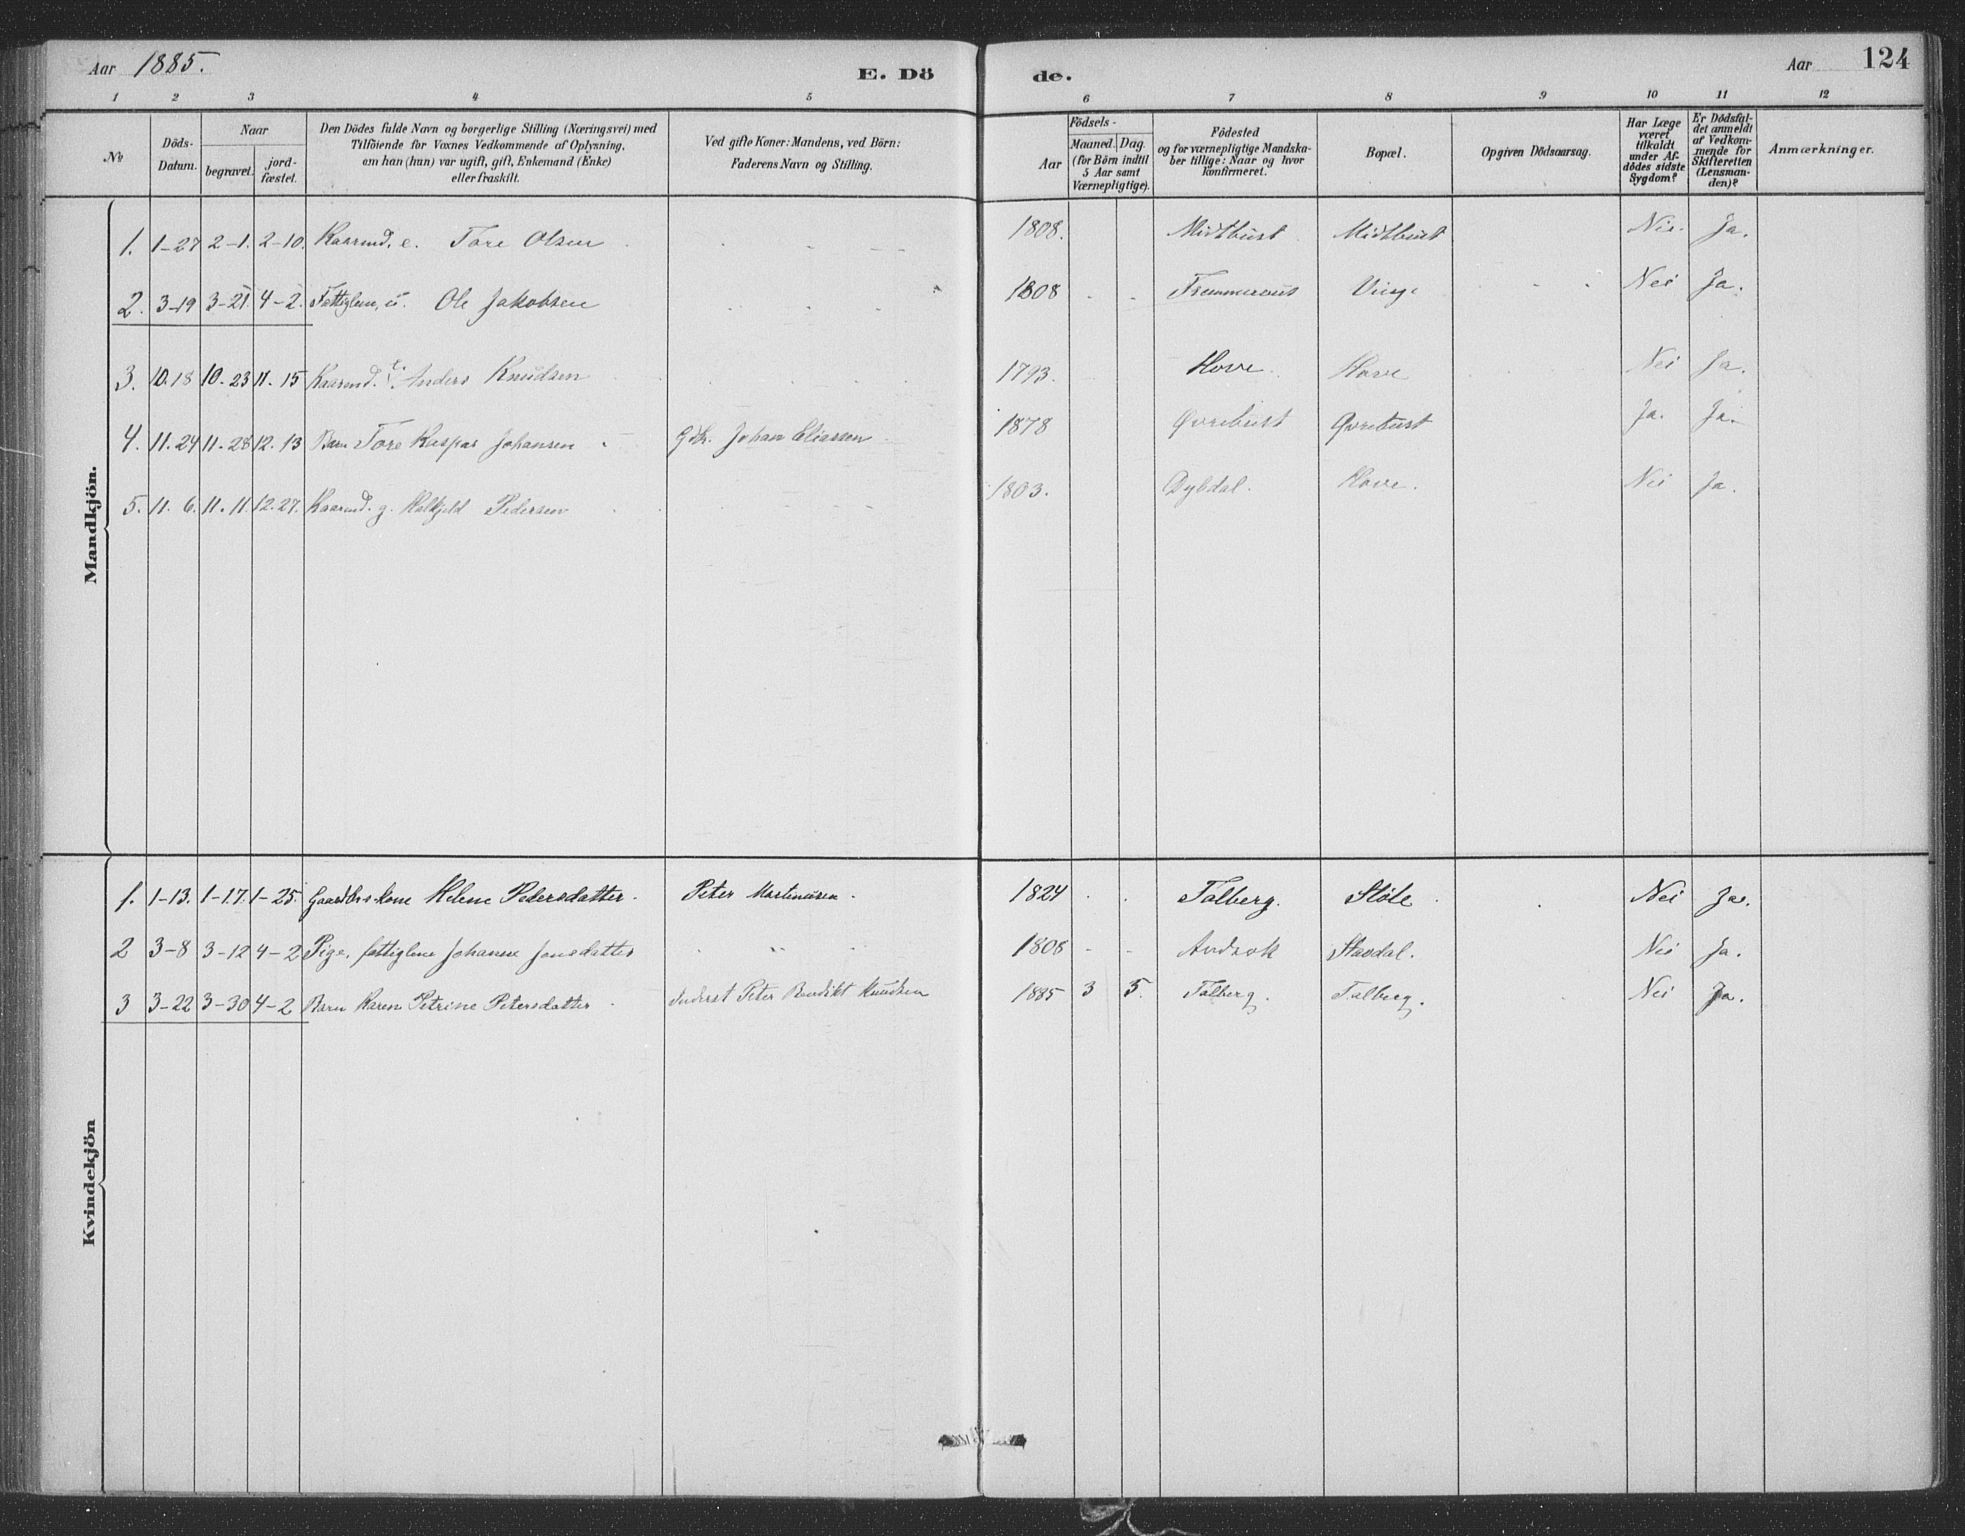 Aar 1885. E. Dö de. Aar 124
1 2 3 4 5 6 7 8 9 10 11 12
No
Döds-Datum.
Naar
begravet.
jord-fæstet.
Den Dödes fulde Navn og borgerlige Stilling (Næringsvei) med
Tilföiende for Voxnes Vedkommende af Oplysning,
om han (hun) var ugift, gift, Enkemand (Enke)
eller fraskilt.
Ved gifte Koner: Mandens, ved Börn:
Faderens Navn og Stilling.
Födsels-
Aar
Maaned. Dag.
(for Börn indtil
5 Aar samt
Værnepligtige).
Födested
og for værnepligtige Mandska-
ber tillige: Naar og hvor
konfirmeret.
Bopæl.
Opgiven Dödsaarsag.
Har Læge
været
tilkaldt
under Af-
dödes sidste
Sygdom?
Er Dödsfal-
det anmeldt
af Vedkom-
mende for
Skifteretten
(Lensman-
den)?
Anmærkninger.
Mandkjön.
1. 1-27 2-1. 2-10. Kaarmd. e. Tore Olsen 1808. Midtbust Midtbust Nei. Ja.
2. 3-19 3-21 4-2. Fattiglem, u. Ole Jakobsen 1808 Nei Ja.
3. 10.18 10.23 11.15 Kaarmd. e. Anders Knudsen 1793. Hove Hove Nei Ja.
4. 11.24 11.28 12.13 Barn Tore Kaspar Johansen Gbr. Johan Eliassen 1878 Øvrebust Øvrebust Ja. Ja.
5. 11.6. 11.11. 12.27. Kaarmd. g. Halkjeld Pedersen 1803. Dybdal. Hove. Nei Ja.
Kvindekjön
1. 1-13. 1-17. 1-25. Gaardbrs.kone Helene Pedersdatter. Peter Martinusen. 1824 Talberg. Støle Nei Ja.
2 3-8 3-12 4-2 Pige, fattiglem Johanne Jonsdatter 1808 Stavdal. Nei Ja.
3 3-22 3-30 4-2 Barn Karen Petrine Petersdatter Inderst Peter Bendikt Knudsen 1885 3 5. Talberg. Talberg. Nei Ja.